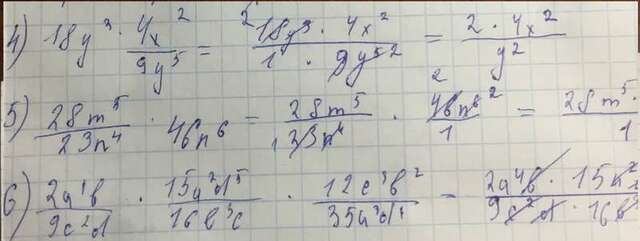 4) 18y³ · 4x²/9y⁵ = 18y³ · 4x²/1 · 9y⁵ = 2 · 4x²/y²
5) 28m⁵/23n⁴ · 46n⁶ = 28m⁵/23n⁴ · 46n⁶/1 = 28m⁵ ·/1
6) 2a⁴b/9c²d · 15a²d⁵/16b³c · 12c³b²/35a³d⁴ = 2a⁴b · 15a²/9c²d · 16b³